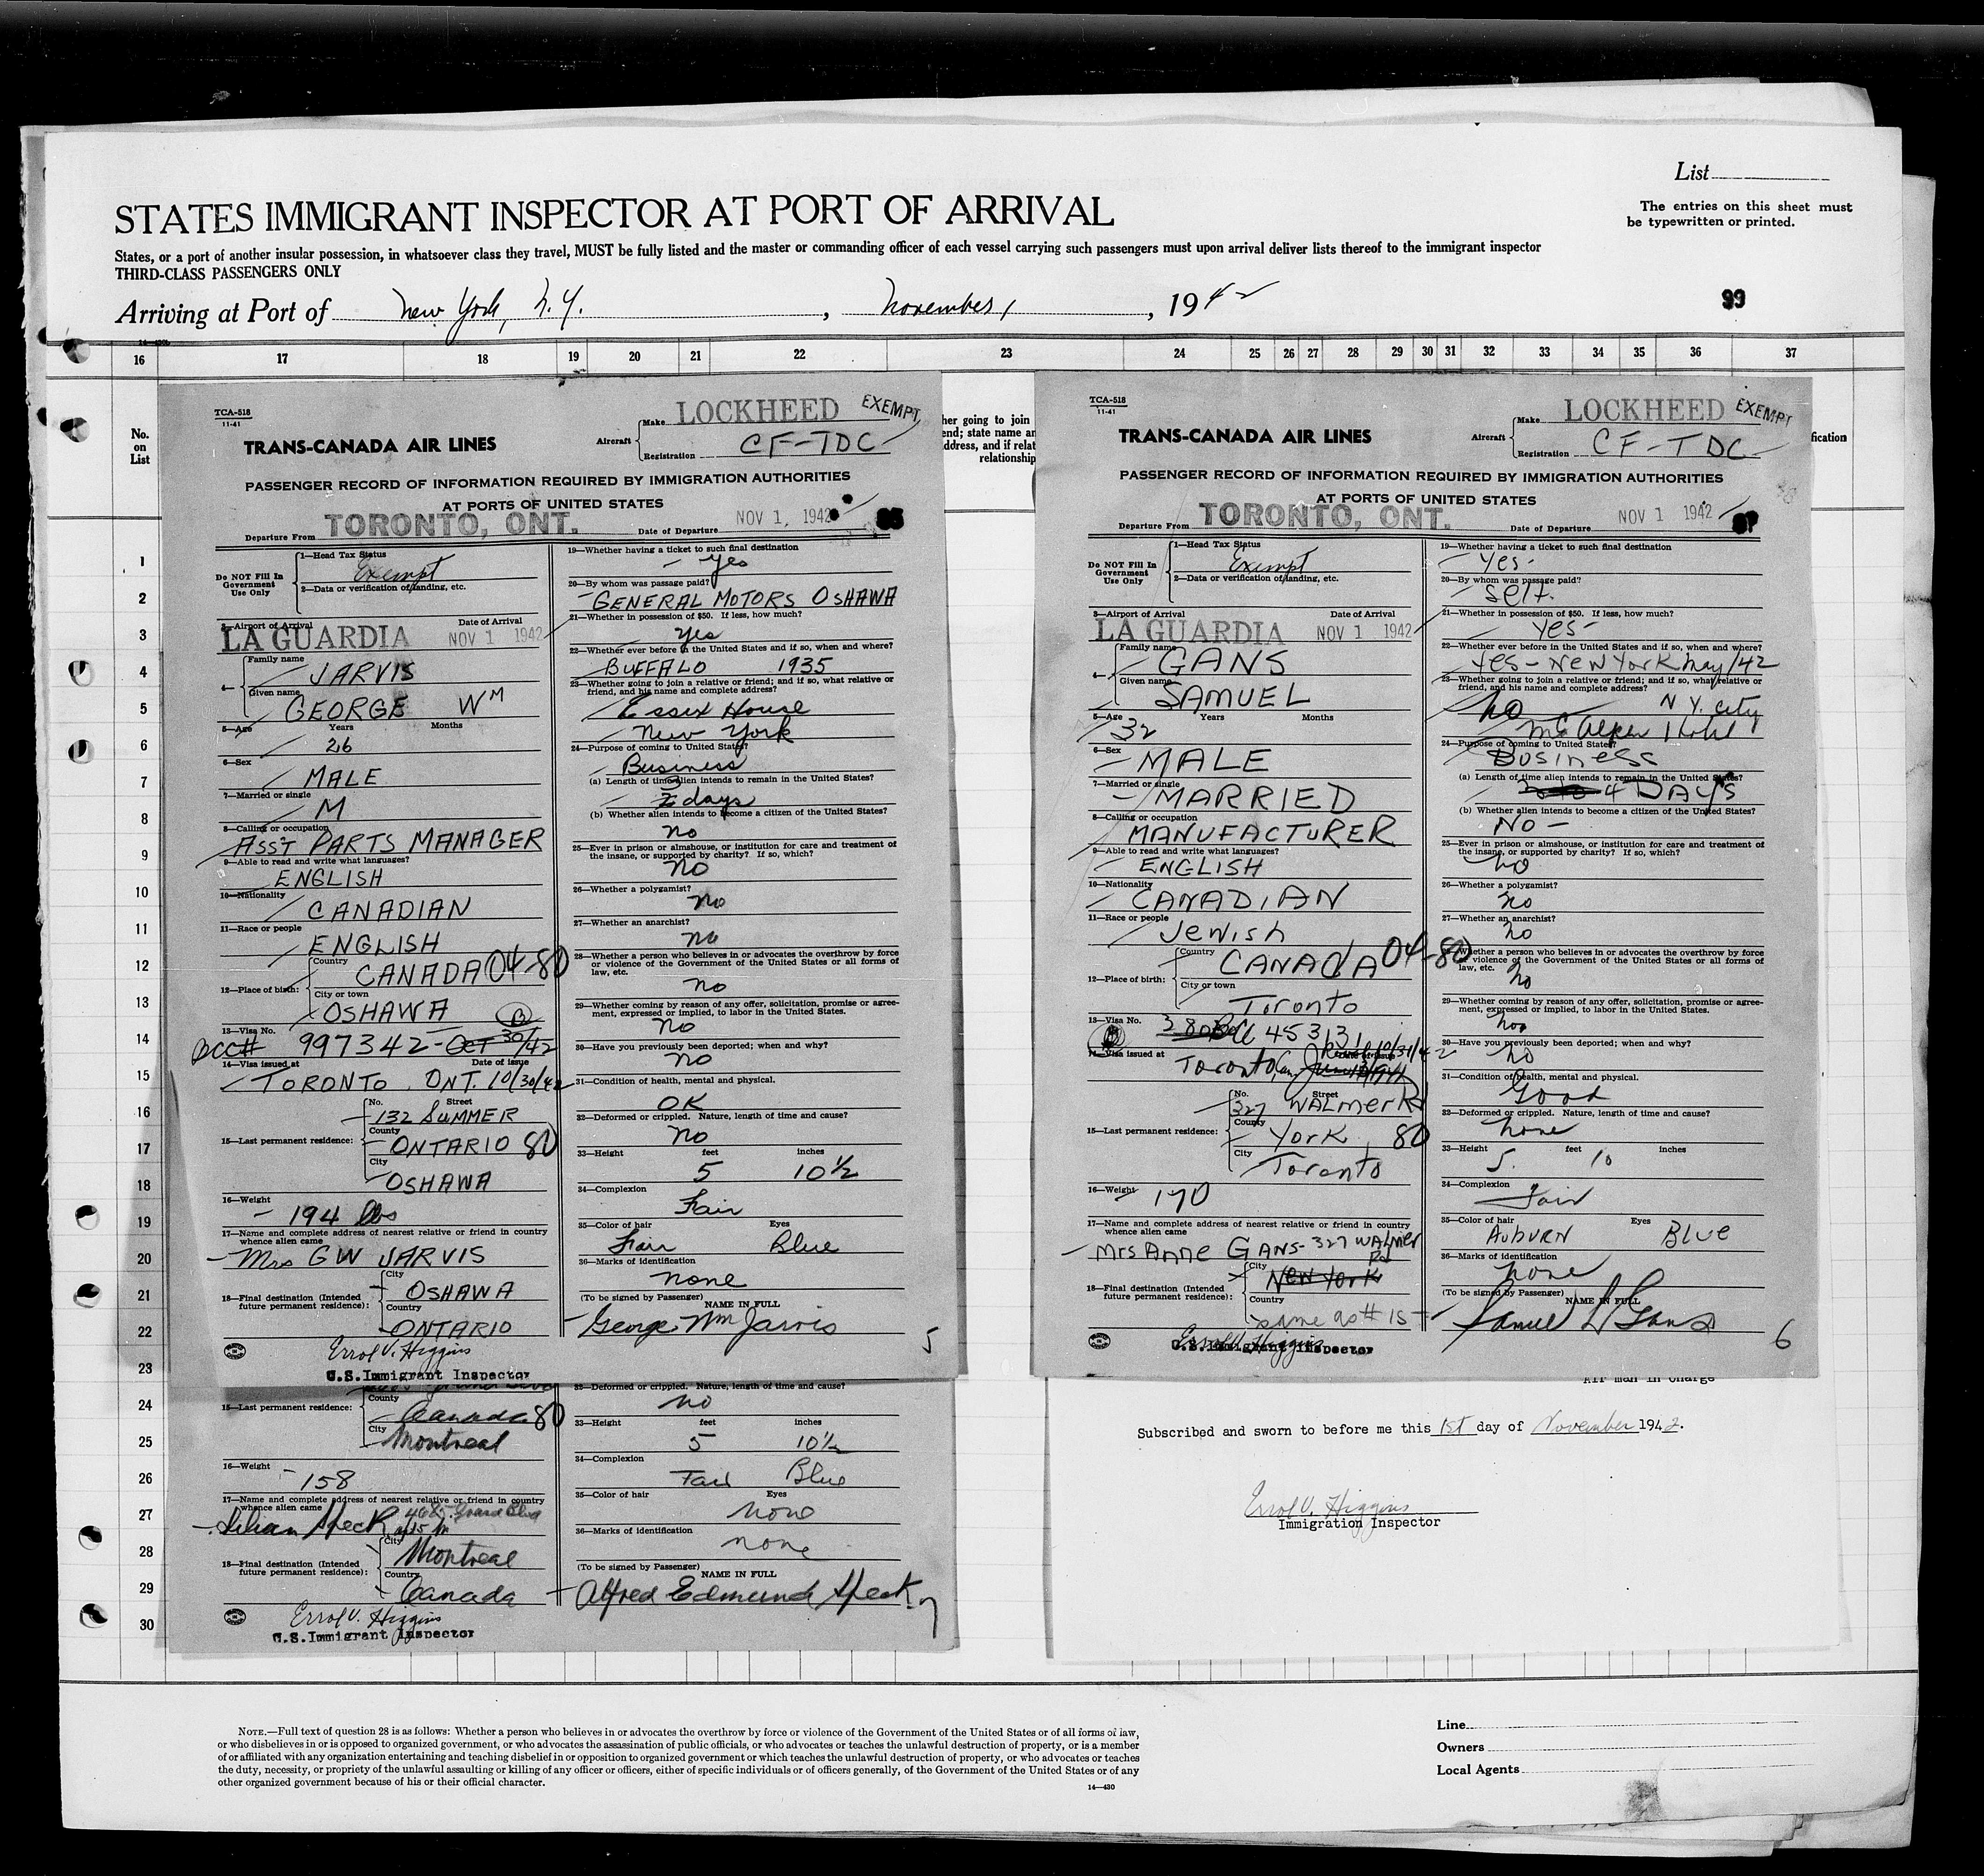 List
STATES IMMIGRANT INSPECTOR AT PORT OF ARRIVAL
The entries on this sheet must
be typewritten or printed.
States, or a port of another insular possession, in whatsoever class they travel, MUST be fully listed and the master or commanding officer of each vessel carrying such passengers must upon arrival deliver lists thereof to the immigrant inspector
THIRD-CLASS PASSENGERS ONLY
Arriving at Port of New York, N.Y., November 1, 1942
99
16 17 18 19 20 21 22 23 24 25 26 27 28 29 30 31 32 33 34 35 36 37
No.
on
List
1
2
3
4
5
6
7
8
9
10
11
12
13
14
15
16
17
18
19
20
21
22
23
24
25
26
27
28
29
30
TCA-518
11-41
TRANS-CANADA AIR LINES
Aircraft
Make LOCKHEED EXEMPT
Registration CF-TDC
PASSENGER RECORD OF INFORMATION REQUIRED BY IMMIGRATION AUTHORITIES
AT PORTS OF UNITED STATES
Departure From TORONTO, ONT. Date of Departure NOV 1, 1942
Do NOT Fill In
Government
Use Only
1—Head Tax Status
Exempt
2—Data or verification of landing, etc.
3—Airport of Arrival Date of Arrival
LA GUARDIA NOV 1 1942
4— Family name
JARVIS
Given name
GEORGE WM
5—Age Years Months
26
6—Sex
MALE
7—Married or single
M
8—Calling or occupation
ASST PARTS MANAGER
9—Able to read and write what languages?
ENGLISH
10—Nationality
CANADIAN
11—Race or people
ENGLISH
12—Place of birth: Country
CANADA 04-80
City or town
OSHAWA
13—Visa No.
BCC# 997342 - OCT 30/42
14—Visa issued at Date of issue
TORONTO, ONT. 10/30/42
15—Last permanent residence: No. Street
132 SUMMER
County
ONTARIO 80
City
OSHAWA
16—Weight
194 lbs
17—Name and complete address of nearest relative or friend in country
whence alien came
Mrs G W JARVIS
18—Final destination (Intended
future permanent residence):
City
OSHAWA
Country
ONTARIO
Errol V. Higgins
U.S. Immigrant Inspector
19—Whether having a ticket to such final destination
Yes
20—By whom was passage paid?
GENERAL MOTORS OSHAWA
21—Whether in possession of $50. If less, how much?
Yes
22—Whether ever before in the United States and if so, when and where?
BUFFALO 1935
23—Whether going to join a relative or friend; and if so, what relative or
friend, and his name and complete address?
Essex House
New York
24—Purpose of coming to United States?
Business
(a) Length of time alien intends to remain in the United States?
3 days
(b) Whether alien intends to become a citizen of the United States?
no
25—Ever in prison or almshouse, or institution for care and treatment of
the insane, or supported by charity? If so, which?
no
26—Whether a polygamist?
no
27—Whether an anarchist?
no
28—Whether a person who believes in or advocates the overthrow by force
or violence of the Government of the United States or all forms of
law, etc.
no
29—Whether coming by reason of any offer, solicitation, promise or agree-
ment, expressed or implied, to labor in the United States.
no
30—Have you previously been deported; when and why?
no
31—Condition of health, mental and physical.
OK
32—Deformed or crippled. Nature, length of time and cause?
no
33—Height feet inches
5 10½
34—Complexion
Fair
35—Color of hair Eyes
Fair Blue
36—Marks of identification
none
(To be signed by Passenger)
NAME IN FULL
George Wm Jarvis
5
TCA-518
11-41
TRANS-CANADA AIR LINES
Aircraft
Make LOCKHEED EXEMPT
Registration CF-TDC
PASSENGER RECORD OF INFORMATION REQUIRED BY IMMIGRATION AUTHORITIES
AT PORTS OF UNITED STATES
Departure From TORONTO, ONT. Date of Departure NOV 1 1942
Do NOT Fill In
Government
Use Only
1—Head Tax Status
Exempt
2—Data or verification of landing, etc.
3—Airport of Arrival Date of Arrival
LA GUARDIA NOV 1 1942
4— Family name
GANS
Given name
SAMUEL
5—Age Years Months
32
6—Sex
MALE
7—Married or single
MARRIED
8—Calling or occupation
MANUFACTURER
9—Able to read and write what languages?
ENGLISH
10—Nationality
CANADIAN
11—Race or people
Jewish
12—Place of birth: Country
CANADA 04-80
City or town
Toronto
13—Visa No.
45331
14—Visa issued at
Toronto, 10/31/42
15—Last permanent residence: No. Street
327 WALMER Rd
County
York 80
City
Toronto
16—Weight
170
17—Name and complete address of nearest relative or friend in country
whence alien came
Mrs Anne GANS - 327 WALMER Rd
18—Final destination (Intended
future permanent residence):
City
New York
Country
same as # 15
Errol V. Higgins
U.S. Immigrant Inspector
19—Whether having a ticket to such final destination
Yes
20—By whom was passage paid?
Self.
21—Whether in possession of $50. If less, how much?
Yes
22—Whether ever before in the United States and if so, when and where?
Yes - New York May/42
23—Whether going to join a relative or friend; and if so, what relative or
friend, and his name and complete address?
no N Y. City
McAlpin Hotel
24—Purpose of coming to United States?
Business
(a) Length of time alien intends to remain in the United States?
4 DAYS
(b) Whether alien intends to become a citizen of the United States?
No
25—Ever in prison or almshouse, or institution for care and treatment of
the insane, or supported by charity? If so, which?
no
26—Whether a polygamist?
no
27—Whether an anarchist?
no
Whether a person who believes in or advocates the overthrow by force
or violence of the Government of the United States or all forms of
law, etc.
no
29—Whether coming by reason of any offer, solicitation, promise or agree-
ment, expressed or implied, to labor in the United States.
no
30—Have you previously been deported; when and why?
no
31—Condition of health, mental and physical.
Good
32—Deformed or crippled. Nature, length of time and cause?
none
33—Height feet inches
5 10
34—Complexion
Fair
35—Color of hair Eyes
AUBURN BLUE
36—Marks of identification
none
(To be signed by Passenger)
NAME IN FULL
Samuel Gans
6
15—Last permanent residence:
County
Canada 80
City
Montreal
16—Weight
158
17—Name and complete address of nearest relative or friend in country
whence alien came
Lilian Speck Grand Blvd
18—Final destination (Intended
future permanent residence):
City
Montreal
Country
Canada
Errol V. Higgins
U.S. Immigrant Inspector
32—Deformed or crippled. Nature, length of time and cause?
no
33—Height feet inches
5 10½
34—Complexion
Fair Blue
35—Color of hair Eyes
none
36—Marks of identification
none
(To be signed by Passenger)
NAME IN FULL
Alfred Edmund Speck
7
Air man in Charge
Subscribed and sworn to before me this 1st day of November 1942.
Errol V. Higgins
Immigration Inspector
NOTE.—Full text of question 28 is as follows: Whether a person who believes in or advocates the overthrow by force or violence of the Government of the United States or of all forms of law,
or who disbelieves in or is opposed to organized government, or who advocates the assassination of public officials, or who advocates or teaches the unlawful destruction of property, or is a member
of or affiliated with any organization entertaining and teaching disbelief in or opposition to organized government or which teaches the unlawful destruction of property, or who advocates or teaches
the duty, necessity, or propriety of the unlawful assaulting or killing of any officer or officers, either of specific individuals or of officers generally, of the Government of the United States or of any
other organized government because of his or their official character.
14—430
Line
Owners
Local Agents